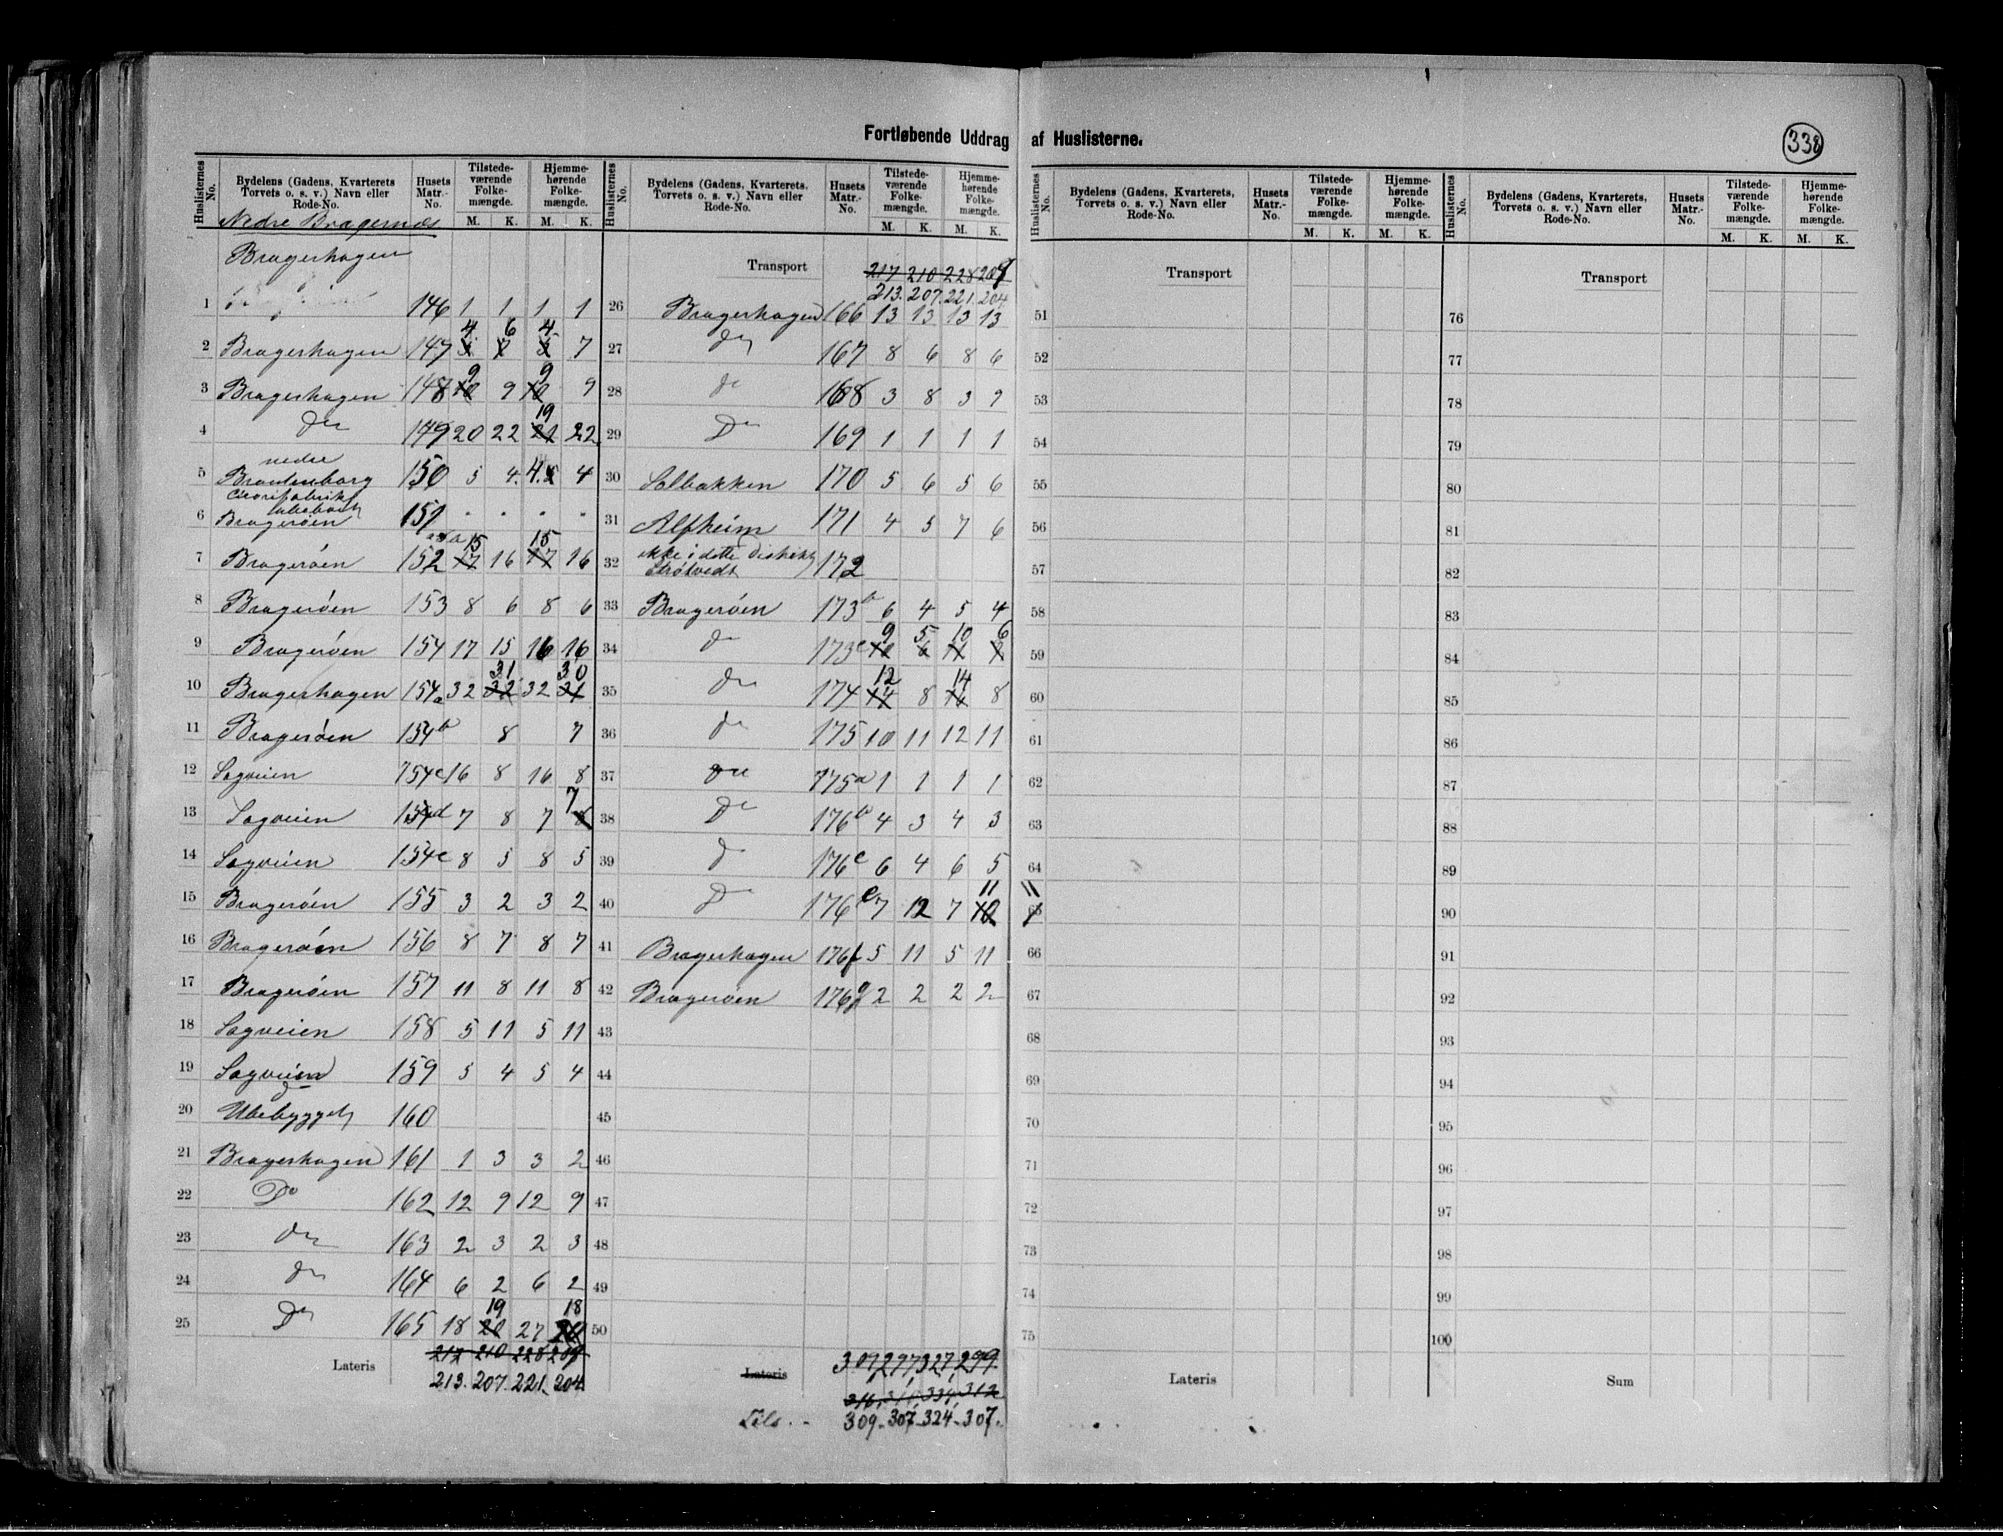 Fortløbende Uddrag af Huslisterne.
338
Huslisternes No. | Bydelens (Gadens, Kvarterets, Torvets o. s. v.) Navn eller Rode-No. | Husets Matr.-No. | Tilstedeværende Folkemængde. M. K. | Hjemmehørende Folkemængde. M. K.
Nedre Bragernæs
Bragerhagen
1 146 1 1 1 1
4 6 4
2 Bragerhagen 147 5 7 5 7
9 9
3 Bragerhagen 148 10 9 10 9
19
4 Do 149 20 22 21 22
nedre
5 Brantenborg 150 5 4. 4. 5 4
6 Bragerøen 151 " " " "
15 15
7 Bragerøen 152 17 16 17 16
8 Bragerøen 153 8 6 8 6
9 Bragerøen 154 17 15 16 16
31 30
10 Bragerhagen 154a 32 32 32 31
11 Bragerøen 154b 8 7
12 Sagveien 154c 16 8 16 8
7
13 Sagveien 154d 7 8 7 8
14 Sagveien 154e 8 5 8 5
15 Bragerøen 155 3 2 3 2
16 Bragerøen 156 8 7 8 7
17 Bragerøen 157 11 8 11 8
18 Sagveien 158 5 11 5 11
19 Sagveien 159 5 4 5 4
Do
20 Ubebygget 160
21 Bragerhagen 161 1 3 3 2
22 Do 162 12 9 12 9
23 Do 163 2 3 2 3
24 Do 164 6 2 6 2
19 18
25 Do 165 18 20 27 20
Lateris 217 210 228 209
213. 207. 221. 204
Huslisternes No. | Bydelens (Gadens, Kvarterets, Torvets o. s. v.) Navn eller Rode-No. | Husets Matr.-No. | Tilstedeværende Folkemængde. M. K. | Hjemmehørende Folkemængde. M. K.
Transport 217 210 228 209
213. 207. 221. 204.
26 Bragerhagen 166 13 13 13 13
27 Do 167 8 6 8 6
28 Do 168 3 8 3 9
29 Do 169 1 1 1 1
30 Solbakken 170 5 6 5 6
31 Alfheim 171 4 5 7 6
ikke i dette Distrikt
32 Strøtvedt 172
33 Bragerøen 173b 6 4 5 4
9 5 10 6
34 Do 173c 10 6 11 7
12 14
35 Do 174 14 8 16 8
36 Do 175 10 11 12 11
37 Do 175a 1 1 1 1
38 Do 176b 4 3 4 3
39 Do 176c 6 4 6 5
11 11
40 Do 176e 7 12 7 10
41 Bragerhagen 176f 5 11 5 11
42 Bragerøen 176g 2 2 2 2
43
44
45
46
47
48
49
50
Lateris 309, 297, 327, 299
316, 310, 334, 312
Tils. 309. 307. 324. 307.
Huslisternes No. | Bydelens (Gadens, Kvarterets, Torvets o. s. v.) Navn eller Rode-No. | Husets Matr.-No. | Tilstedeværende Folkemængde. M. K. | Hjemmehørende Folkemængde. M. K.
Transport
51
52
53
54
55
56
57
58
59
60
61
62
63
64
65
66
67
68
69
70
71
72
73
74
75
Lateris
Huslisternes No. | Bydelens (Gadens, Kvarterets, Torvets o. s. v.) Navn eller Rode-No. | Husets Matr.-No. | Tilstedeværende Folkemængde. M. K. | Hjemmehørende Folkemængde. M. K.
Transport
76
77
78
79
80
81
82
83
84
85
86
87
88
89
90
91
92
93
94
95
96
97
98
99
100
Sum